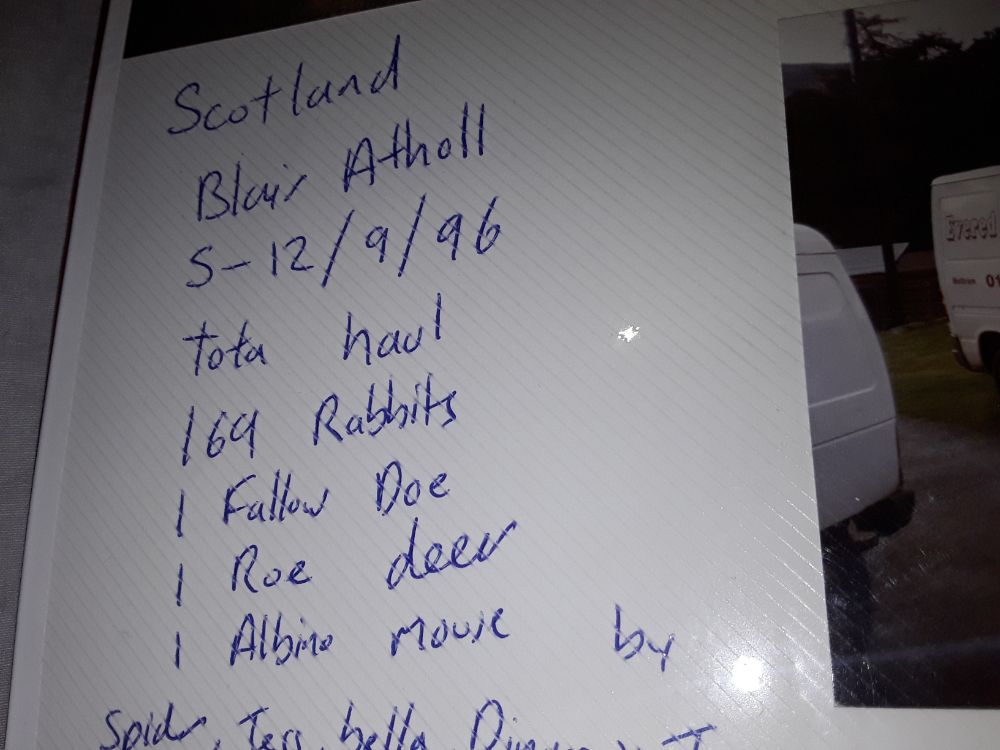 Scotland
Blair Atholl
5-12/9/96
tota haul
169 Rabbits
1 Fallow Doe
1 Roe deer
1 Albino mouse by
Spider, Tess, bella,
Evered
01